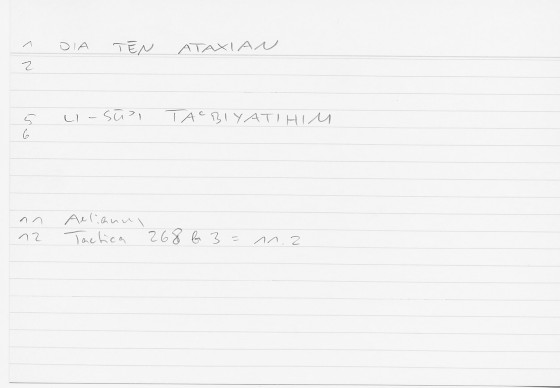 1 DIA TĒN ATAXIAN
2
5 LI-SŪʾI TAʿBIYATIHIM
6
11 Aelianus,
12 Tactica 268 B 3 = 11.2